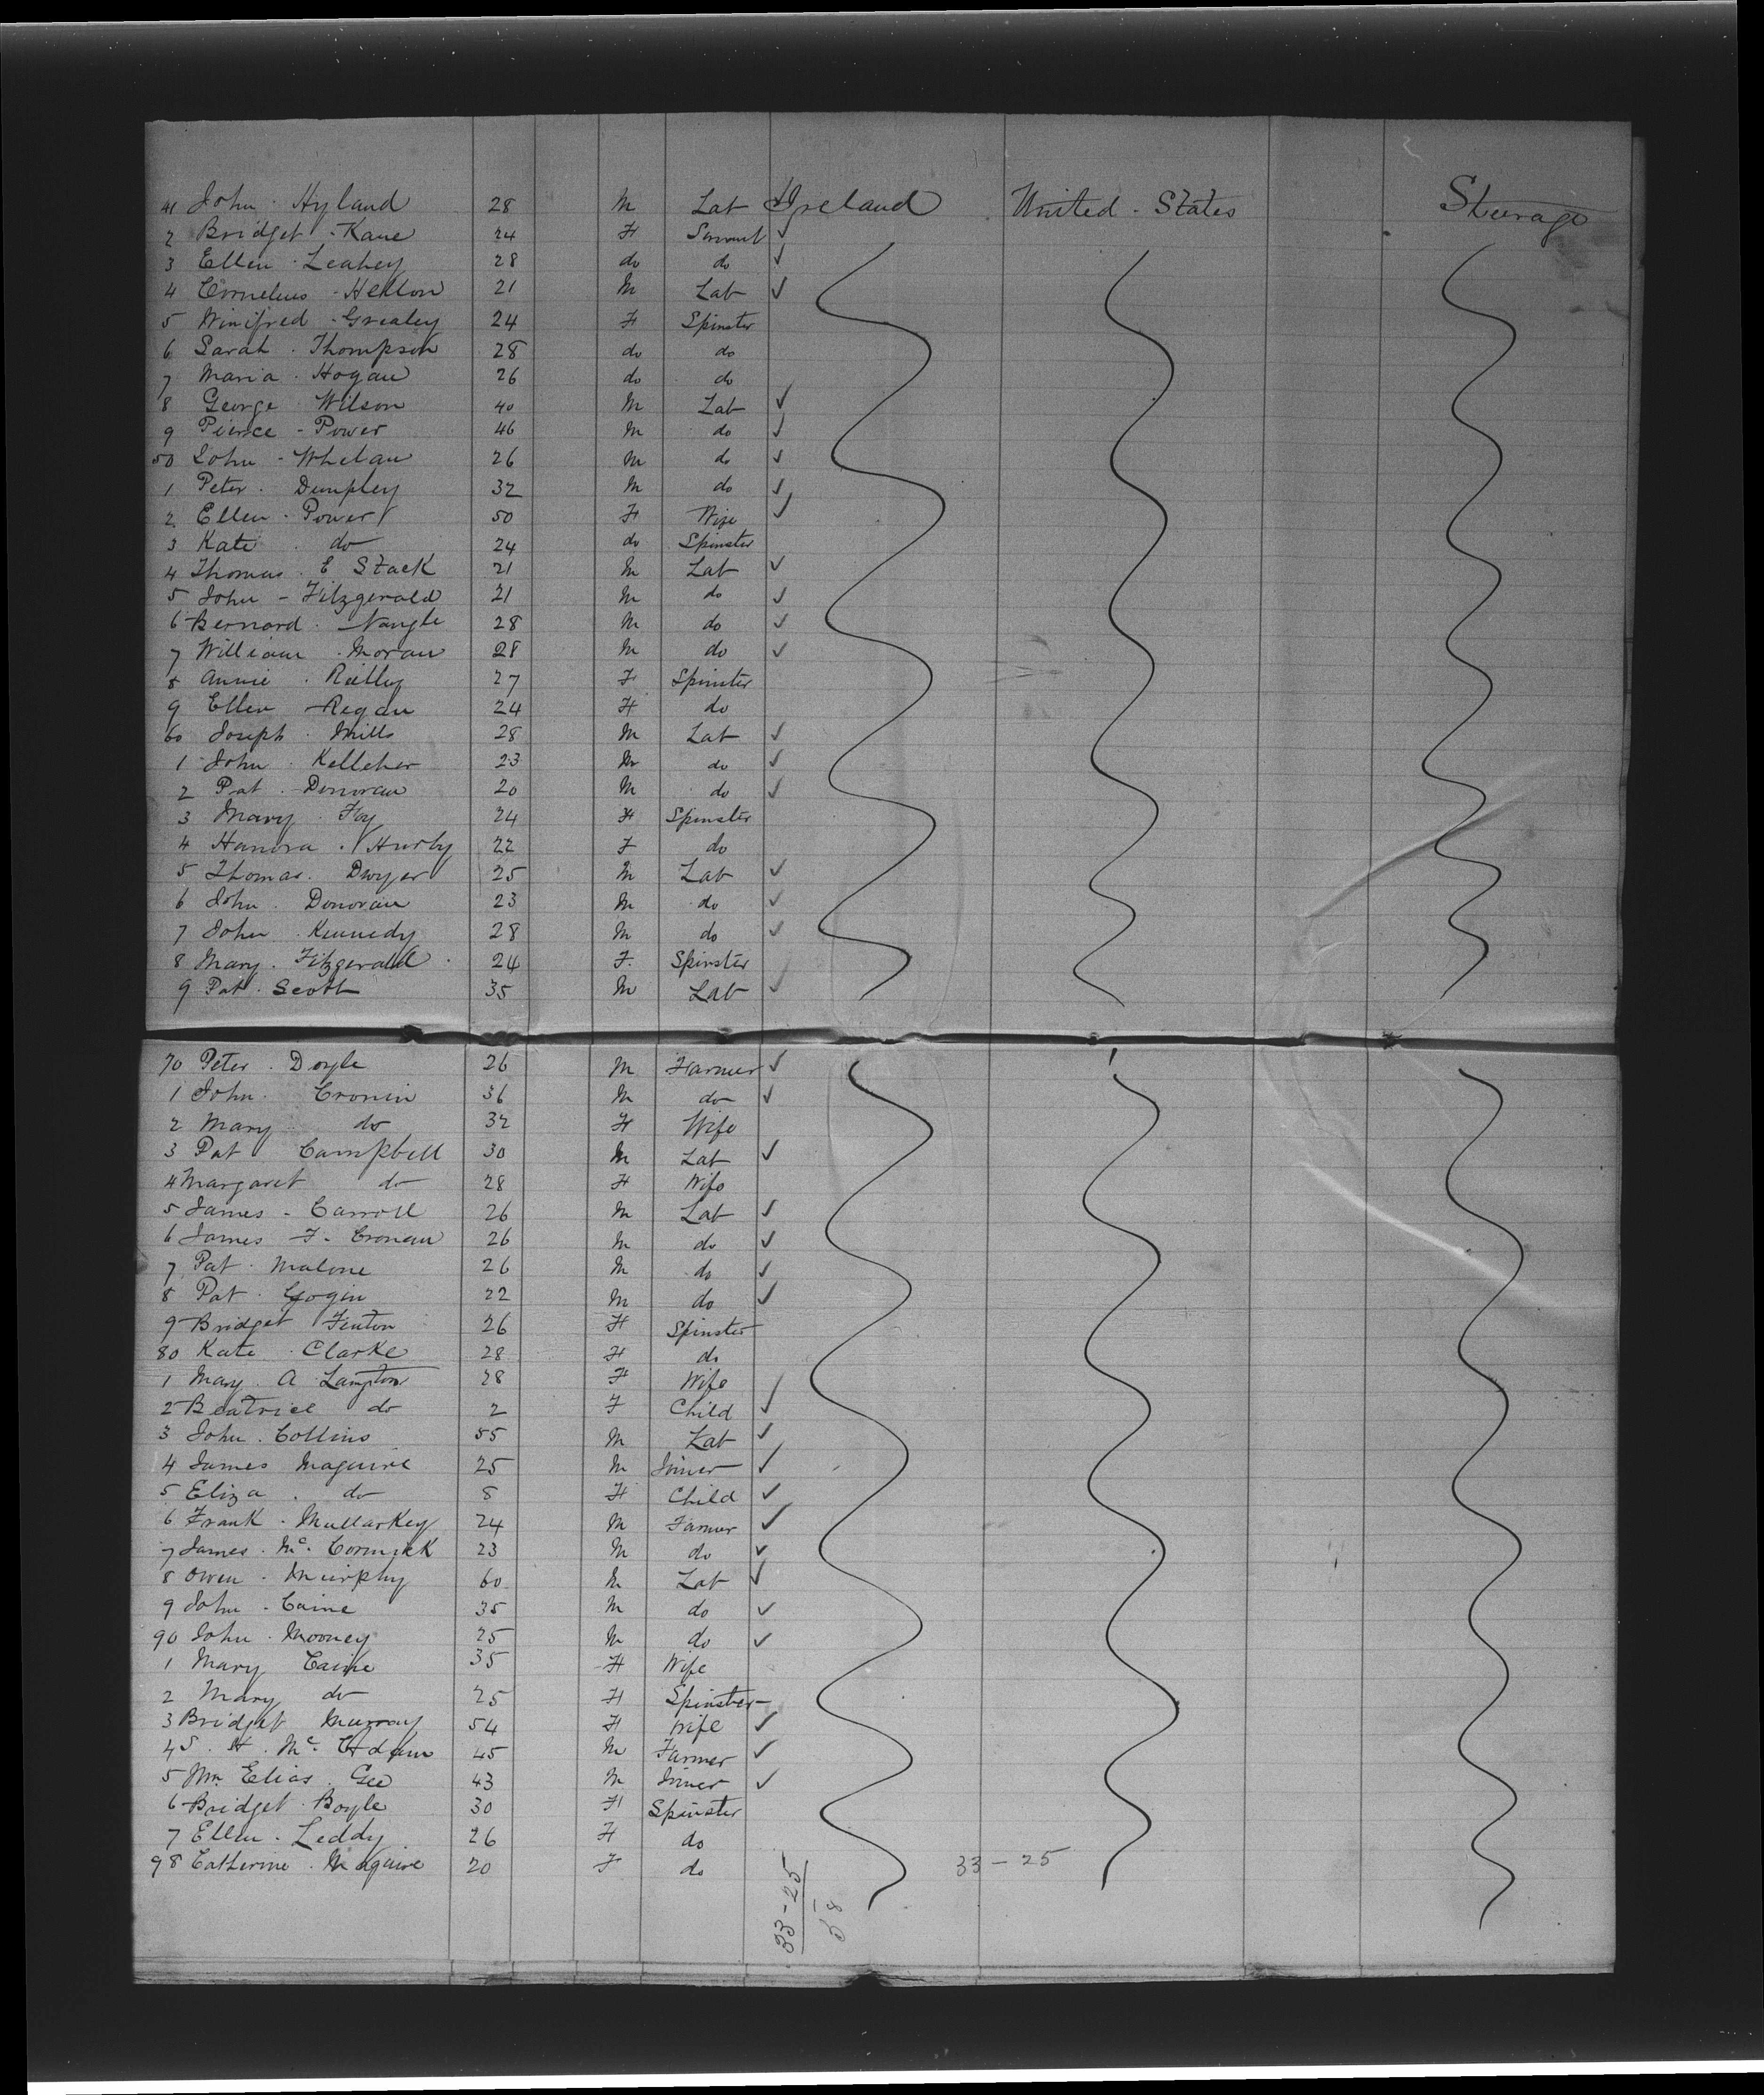 41 John Hyland 28 M Lab Ireland United States Steerage
2 Bridget Kane 24 F Servant
3 Ellen Leahey 28 do do
4 Cornelius 21 M Lab
5 Winifred Grealey 24 F Spinster
6 Sarah Thompson 28 do do
7 Maria Hogan 26 do do
8 George Wilson 40 M Lab
9 Pierce Power 46 M do
50 John Whelan 26 M do
1 Peter Dunphey 32 M do
2 Ellen Power 50 F Wife
3 Kate do 24 do Spinster
4 Thomas E Stack 21 M Lab
5 John Fitzgerald 21 M do
6 Bernard Nangle 28 M do
7 William Moran 28 M do
8 Annie Reilly 27 F Spinster
9 Ellen Regan 24 F do
60 Joseph Mills 28 M Lab
1 John Kelleher 23 M do
2 Pat Donovan 20 M do
3 Mary Foy 24 F Spinster
4 Hanora Hurly 22 F do
5 Thomas Dwyer 25 M Lab
6 John Donovan 23 M do
7 John Kennedy 28 M do
8 Mary Fitzgerald 24 F. Spinster
9 Pat Scott 35 M Lab
70 Peter Doyle 26 M Farmer
1 John Cronin 36 M do
2 Mary do 32 F Wife
3 Pat Campbell 30 M Lab
4 Margaret do 28 F Wife
5 James Carroll 26 M Lab
6 James F. Cronan 26 M do
7 Pat Malone 26 M do
8 Pat Gogin 22 M do
9 Bridget Fenton 26 F Spinster
80 Kate Clarke 28 F do
1 Mary A Langton 28 F Wife
2 Beatrice do 2 F Child
3 John Collins 55 M Lab
4 James Maguire 25 M Joiner
5 Eliza do 8 F Child
6 Frank Mullarkey 24 M Farmer
7 James Mc Cormick 23 M do
8 Owen Murphy 60 M Lab
9 John Caine 35 M do
90 John Mooney 25 M do
1 Mary Caine 35 F Wife
2 Mary do 25 F Spinster
3 Bridget Murray 54 F Wife
4 S. H. Mc Adam 45 M Farmer
5 Wm Elias Gee 43 M Joiner
6 Bridget Boyle 30 F Spinster
7 Ellen Leddy 26 F do
98 Catherine Maguire 20 F do 33-25
33-25
58